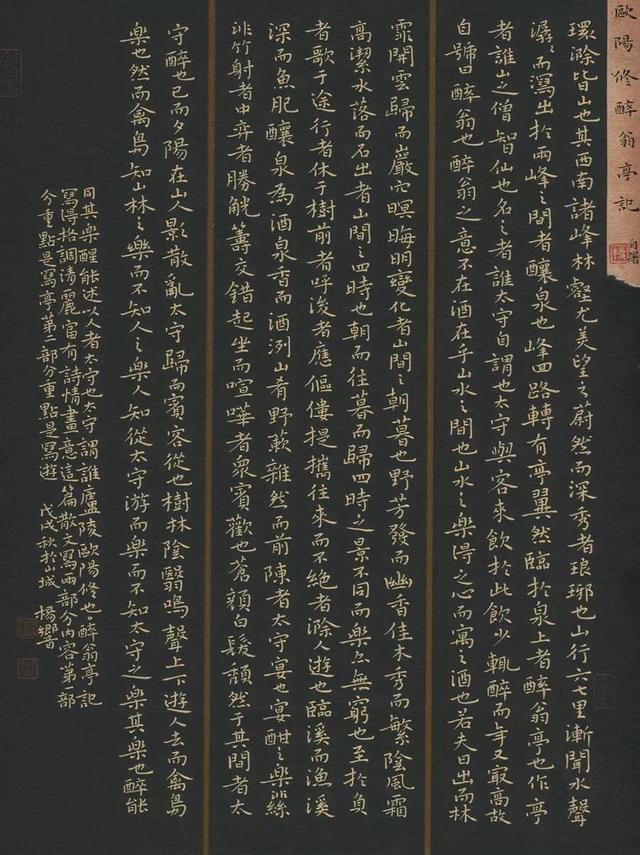 歐陽修醉翁亭記 自署
環滁皆山也其西南諸峰林壑尤美望之蔚然而深秀者琅琊也山行六七里漸聞水聲
潺〻而瀉出於兩峰之間者釀泉也峰回路轉有亭翼然臨於泉上者醉翁亭也作亭
者誰山之僧智仙也名之者誰太守自謂也太守與客來飲於此飲少輒醉而年又最高故
自號曰醉翁也醉翁之意不在酒在乎山水之間也山水之樂得之心而寓之酒也若夫日出而林
霏開雲歸而巖穴暝晦明變化者山間之朝暮也野芳發而幽香佳木秀而繁陰風霜
高潔水落而石出者山間之四時也朝而往暮而歸四時之景不同而樂亦無窮也至於負
者歌于途行者休于樹前者呼後者應傴僂提攜往來而不絕者滁人遊也臨溪而漁溪
深而魚肥釀泉為酒泉香而酒洌山肴野蔌雜然而前陳者太守宴也宴酣之樂非絲
非竹射者中弈者勝觥籌交錯起坐而喧嘩者眾賓歡也蒼顏白髮頹然于其間者太
守醉也已而夕陽在山人影散亂太守歸而賓客從也樹林陰翳鳴聲上下遊人去而禽鳥
樂也然而禽鳥知山林之樂而不知人之樂人知從太守游而樂而不知太守之樂其樂也醉能
同其樂醒能述以人者太守也太守謂誰廬陵歐陽修也。醉翁亭記
寫得格調清麗富有詩情畫意這篇散文寫兩部分內容第一部
分重點是寫亭第二部分重點是寫遊 戊戌秋於山城 楊響